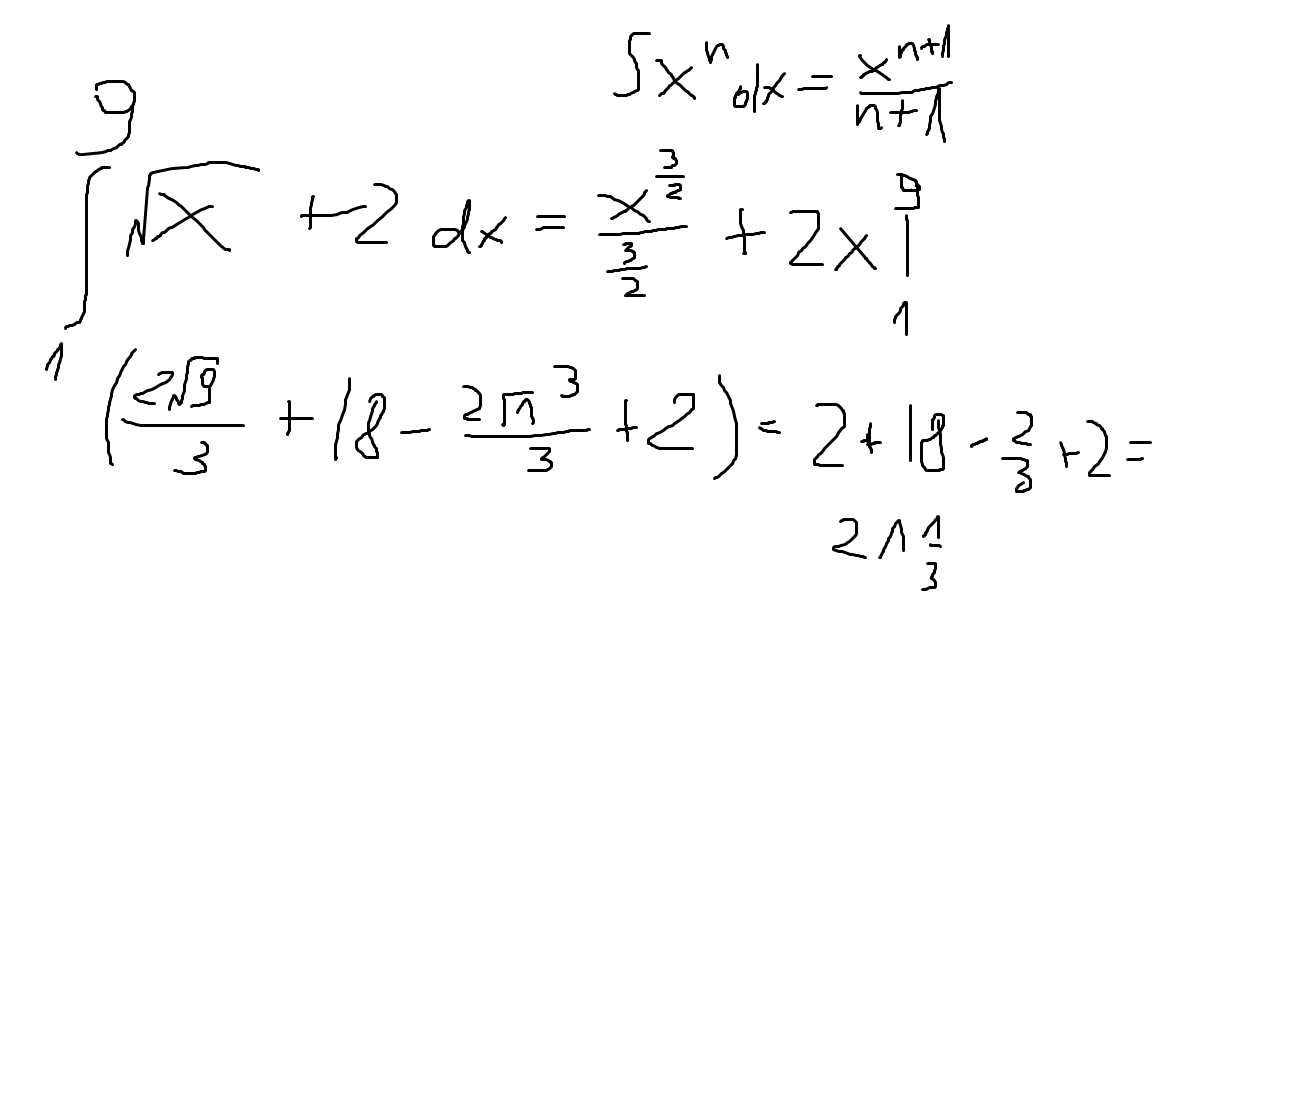 ∫xⁿ dx = x^(n+1)/(n+1)
∫₁⁹ √x + 2 dx = x^(3/2)/(3/2) + 2x |₁⁹
(2√9/3 + 18 - 2√1³/3 + 2) = 2 + 18 - 2/3 + 2 =
21 1/3